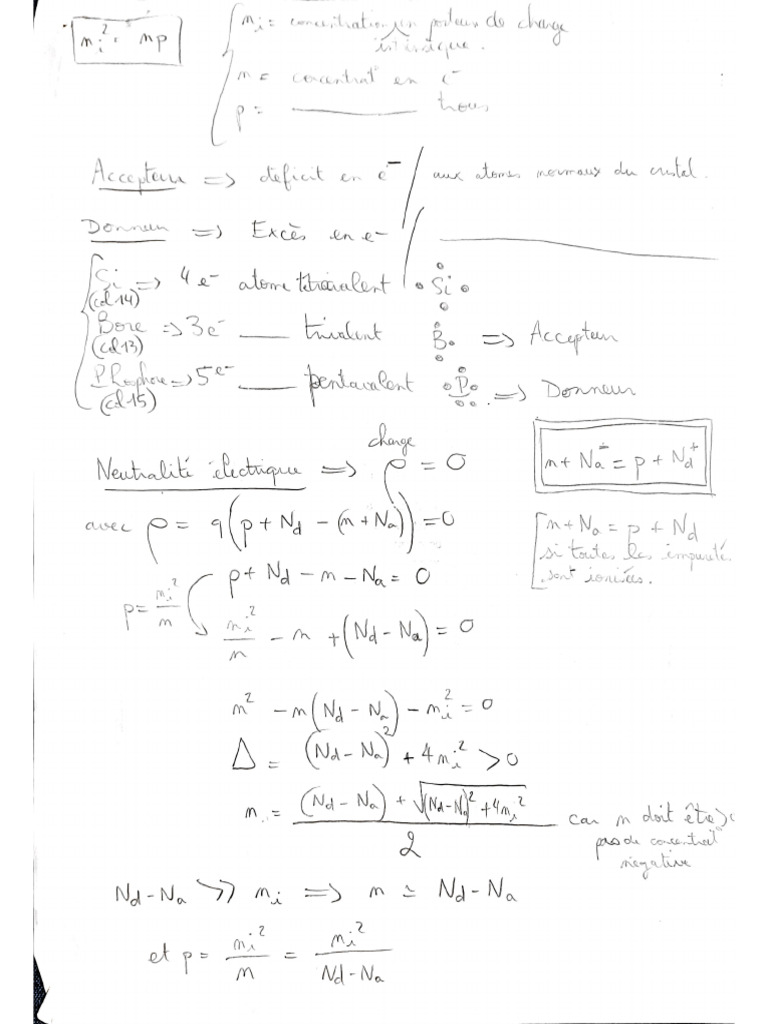 n_i² = np
n_i = concentration en porteurs de charge
intrinsèque.
n = concentrat° en e⁻
p = ——— trous
Accepteur => déficit en e⁻ / aux atomes normaux du cristal.
Donneur => Excès en e⁻ / ———
Si => 4 e⁻ atome tétravalent •Si•
(col 14)
Bore => 3e⁻ ——— trivalent B. => Accepteur
(col 13)
Phosphore => 5e⁻ ——— pentavalent P => Donneur
(col 15)
charge
Neutralité électrique => ρ = 0
n + Na⁻ = p + Nd⁺
avec ρ = q(p + Nd - (n + Na)) = 0
n + Na = p + Nd
si toutes les impuretés
sont ionisées.
p + Nd - n - Na = 0
p = n_i²/n
n_i²/n - n + (Nd - Na) = 0
n² - n(Nd - Na) - n_i² = 0
Δ = (Nd - Na)² + 4n_i² > 0
n = ((Nd - Na) + √((Nd - Na)² + 4n_i²))/2 car n doit être >
pas de concentrat°
négative
Nd - Na >> n_i => n ≃ Nd - Na
et p = n_i²/n = n_i²/(Nd - Na)